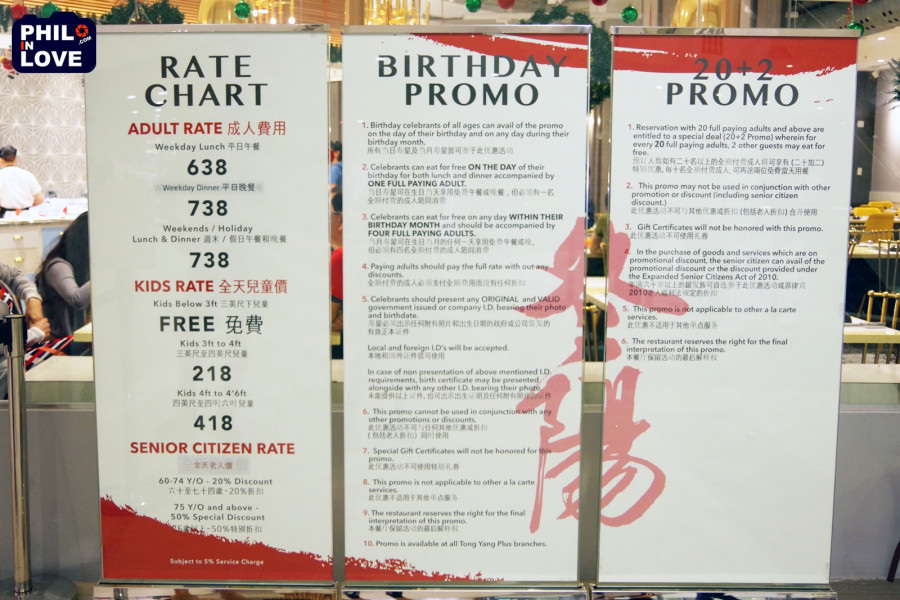 PHIL
IN
LOVE
.COM
RATE
CHART
ADULT RATE 成人費用
Weekday Lunch 平日午餐
638
Weekday Dinner 平日晚餐
738
Weekends / Holiday
Lunch & Dinner 週末 / 假日午餐和晚餐
738
KIDS RATE 全天兒童價
Kids Below 3ft 三英尺下兒童
FREE 免費
Kids 3ft to 4ft
三英尺至四英尺兒童
218
Kids 4ft to 4'6ft
四英尺至四呎六吋兒童
418
SENIOR CITIZEN RATE
全天老人價
60-74 Y/O - 20% Discount
六十至七十四歲-20%折扣
75 Y/O and above -
50% Special Discount
歲以上-50%特別折扣
Subject to 5% Service Charge
BIRTHDAY
PROMO
1. Birthday celebrants of all ages can avail of the promo
on the day of their birthday and on any day during their
birthday month.
所有当日寿星及当月寿星皆可参于此优惠活动
2. Celebrants can eat for free ON THE DAY of their
birthday for both lunch and dinner accompanied by
ONE FULL PAYING ADULT.
当日寿星可在生日当天享用免费午餐或晚餐，但必须有一名
全须付费的成人陪同消费
3. Celebrants can eat for free on any day WITHIN THEIR
BIRTHDAY MONTH and should be accompanied by
FOUR FULL PAYING ADULTS.
当月寿星可在生日当月的任何一天享用免费午餐或晚，
但必须有四名全须付费的成人陪同消费
4. Paying adults should pay the full rate with out any
discounts.
全须付费的成人必须支付全须费用而没有任何折扣
5. Celebrants should present any ORIGINAL and VALID
government issued or company I.D. bearing their photo
and birthdate.
寿星必须出示任何附有照片和出生日期的政府或公司签发的
有效正本证件
Local and foreign I.D's will be accepted.
本地和国外证件皆可使用
In case of non presentation of above mentioned I.D.
requirements, birth certificate may be presented
alongside with any other I.D. bearing their photo.
未能提供以上证件，也可出示出生证明及任何附有照片的证件
6. This promo cannot be used in conjunction with any
other promotions or discounts.
此优惠活动不可与任何其他优惠或折扣
(包括老人折扣) 同时使用
7. Special Gift Certificates will not be honored for this
promo.
此优惠活动不可使用特别礼券
8. This promo is not applicable to other a la carte
services.
此优惠不适用于其他单点服务
9. The restaurant reserves the right for the final
interpretation of this promo.
本餐厅保留活动的最后解释权
10. Promo is available at all Tong Yang Plus branches.
20+2
PROMO
1. Reservation with 20 full paying adults and above are
entitled to a special deal (20+2 Promo) wherein for
every 20 full paying adults, 2 other guests may eat for
free.
预订人数如有二十名以上的全须付费成人将可享有 (二十加二)
特别优惠, 每十名全须付费成人, 可再送两位免费当天用餐
2. This promo may not be used in conjunction with other
promotion or discount (including senior citizen
discount.)
此优惠活动不可与其他优惠或折扣 (包括老人折扣) 合并使用
3. Gift Certificates will not be honored with this promo.
此优惠活动不可使用礼券
4. In the purchase of goods and services which are on
promotional discount, the senior citizen can avail of the
promotional discount or the discount provided under
the Expanded Senior Citizens Act of 2010.
六十岁以上的银发族可自选参于此优惠活动或菲律宾
2010老人福利法规定的折扣
5. This promo is not applicable to other a la carte
services.
此优惠不适用于其他单点服务
6. The restaurant reserves the right for the final
interpretation of this promo.
本餐厅保留活动的最后解释权
陽